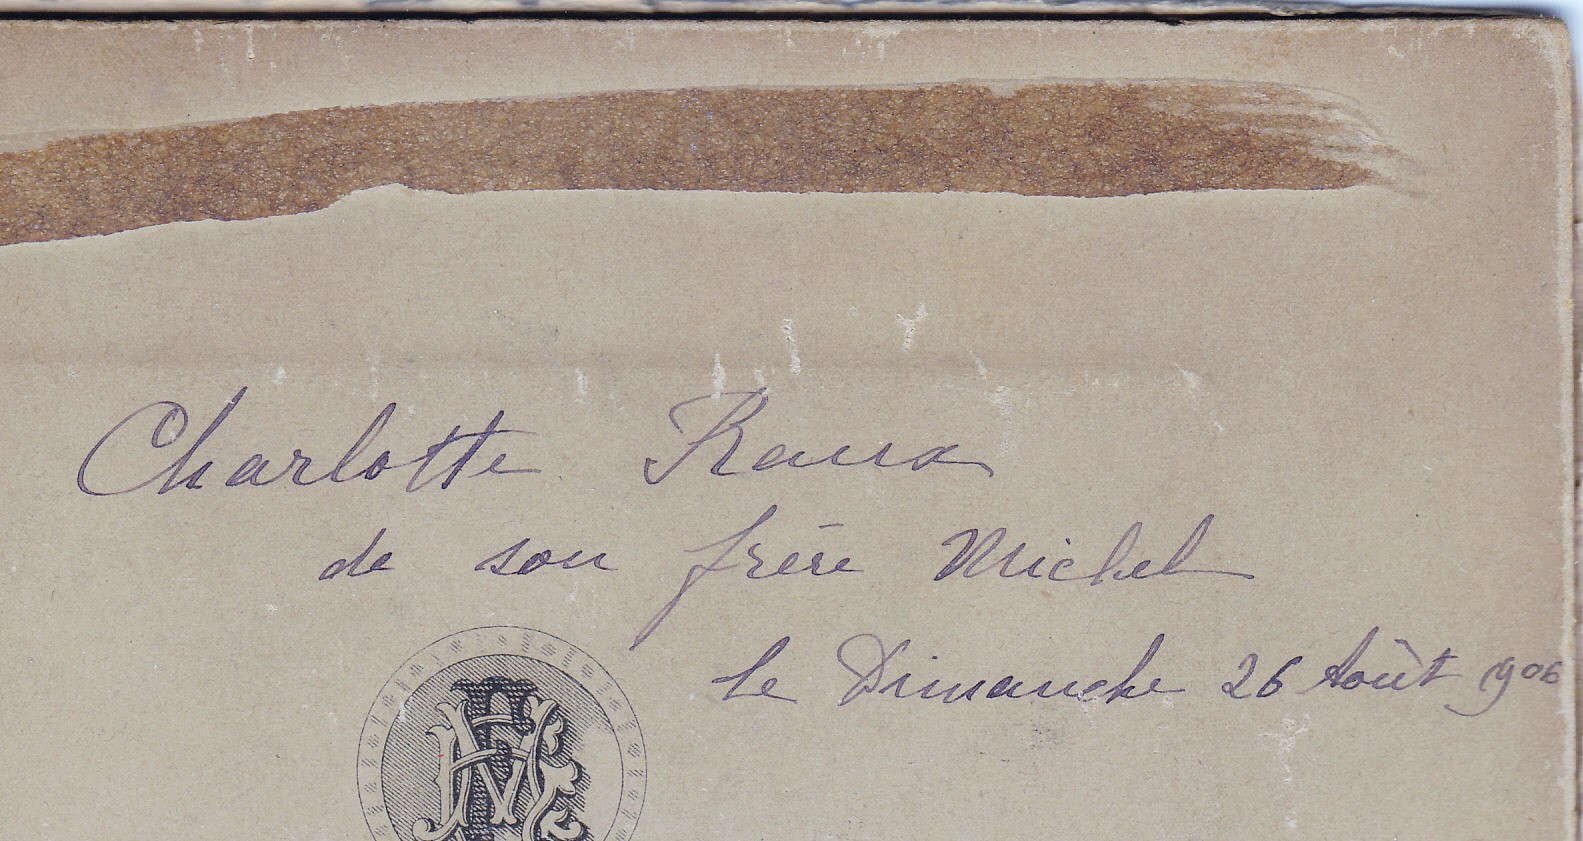 Charlotte Raux
de son frère Michel
le Dimanche 26 Août 906